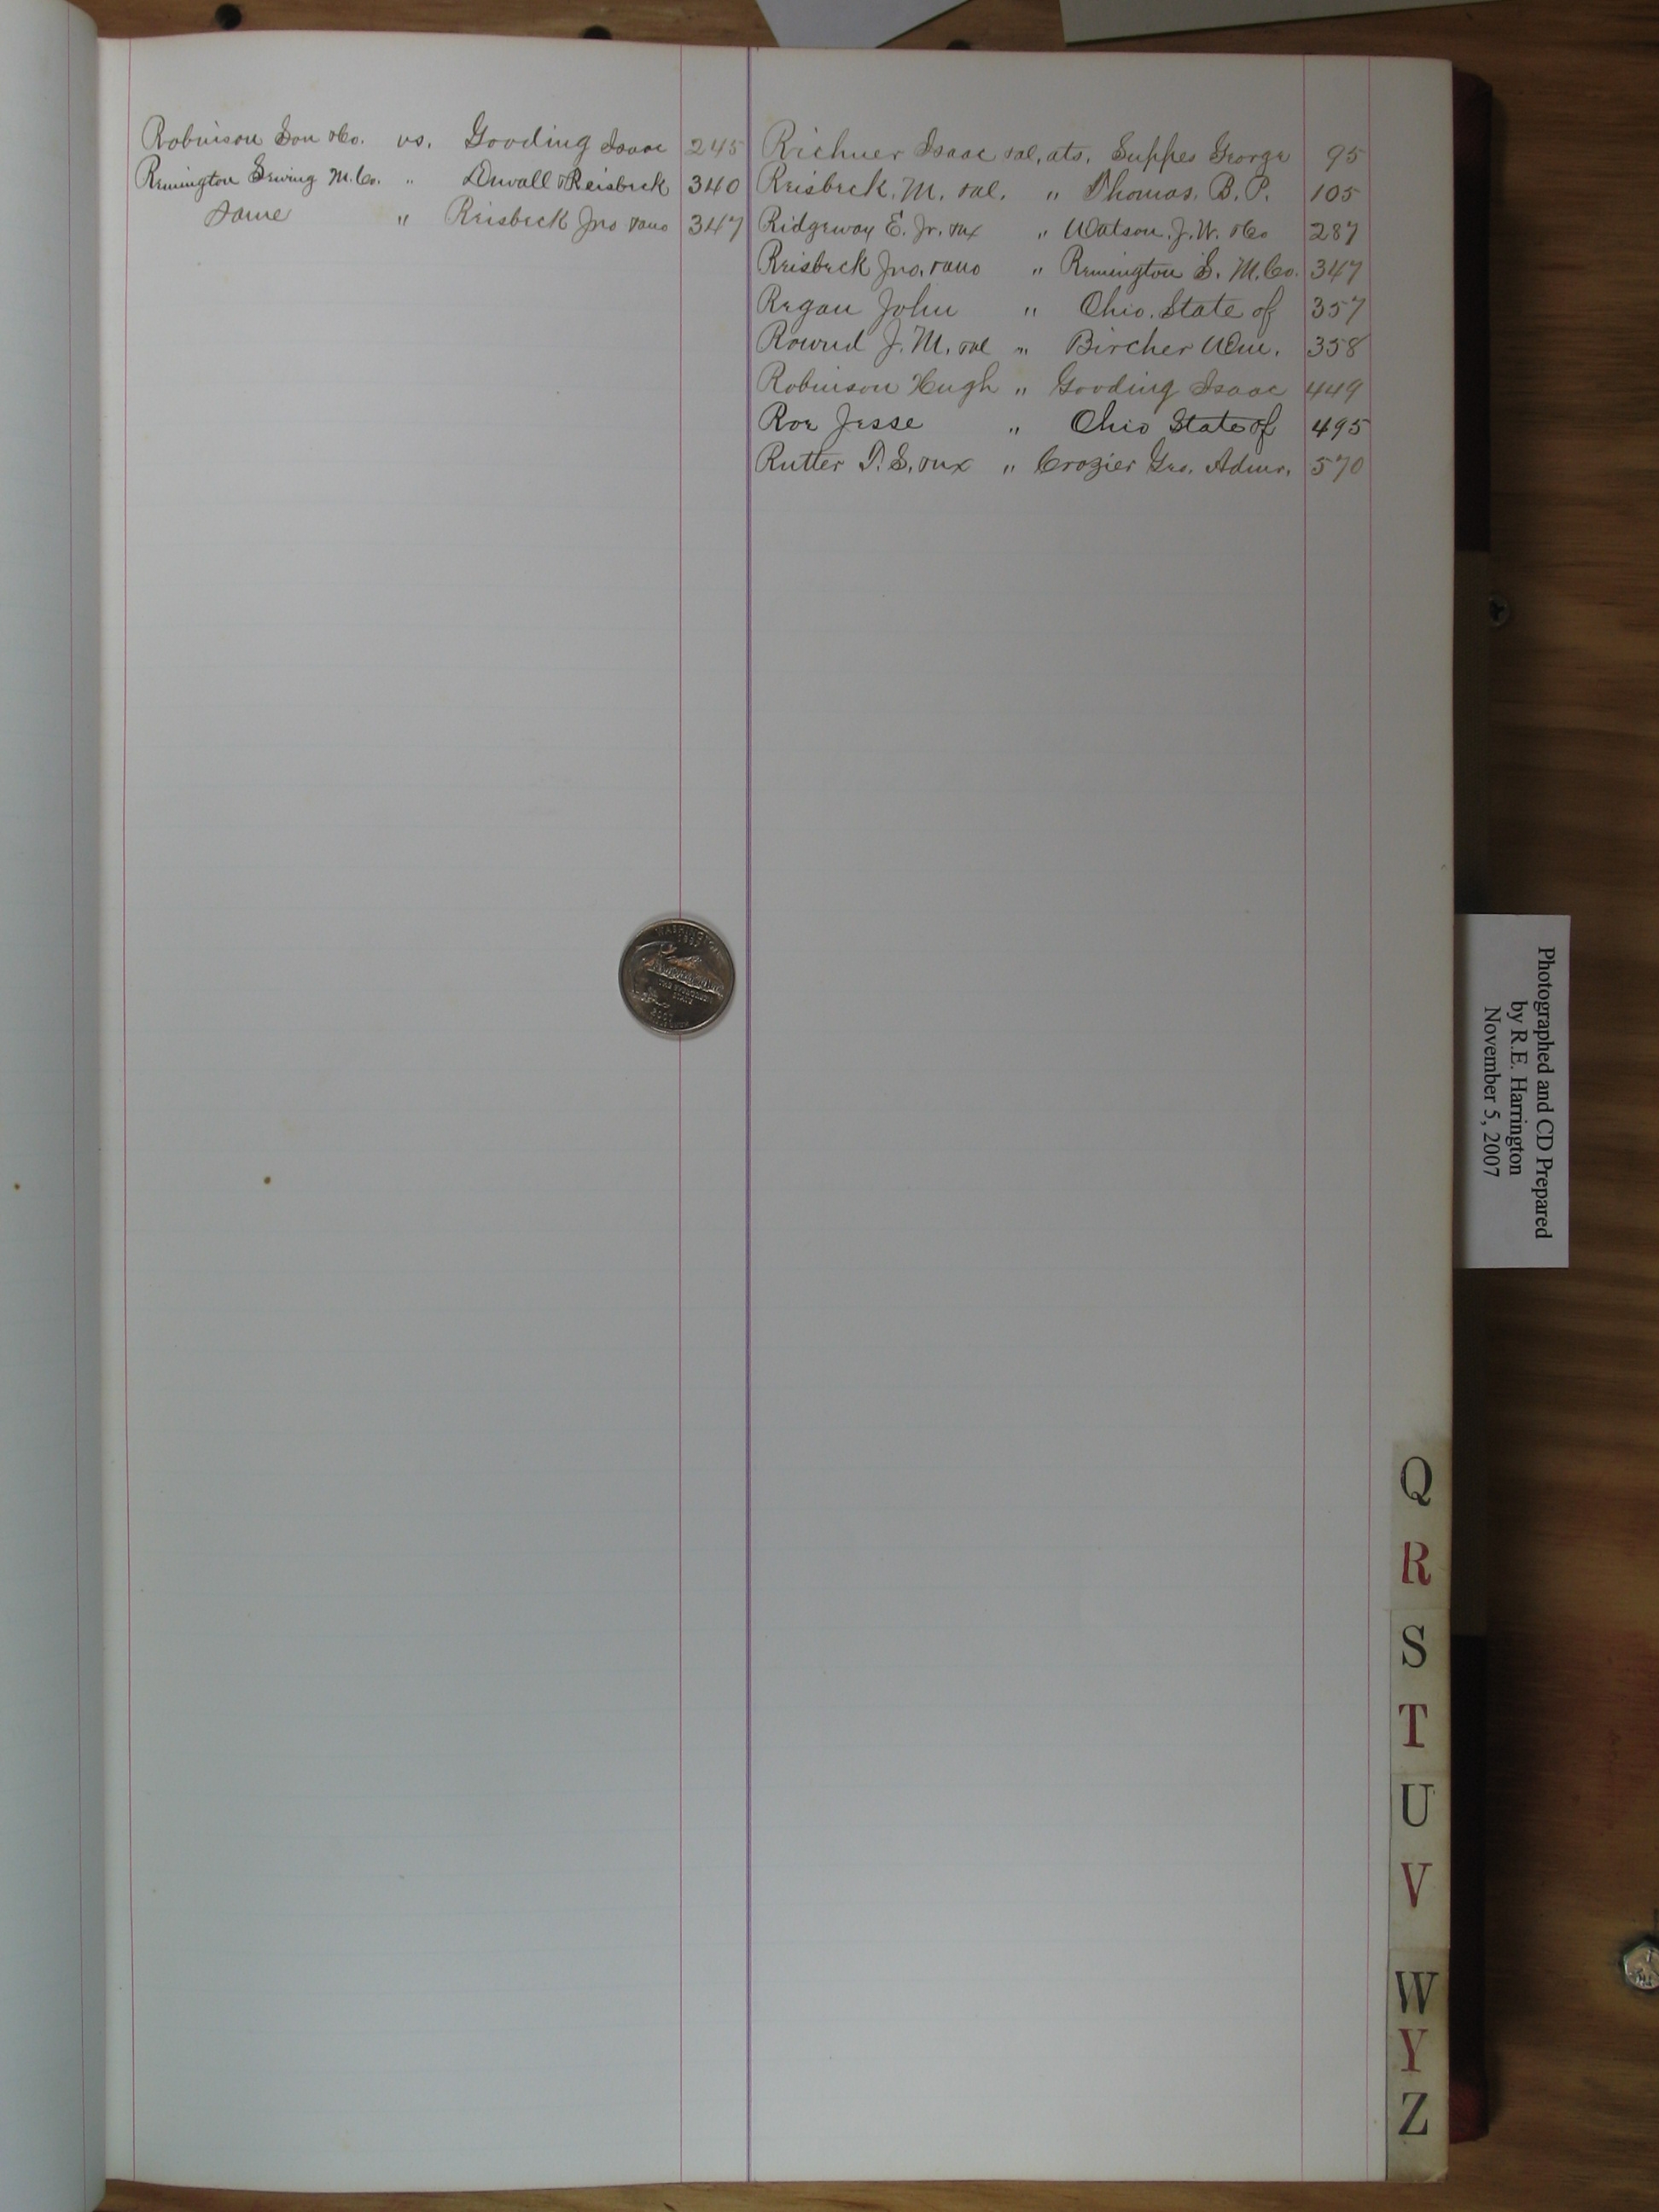 Robinson Son & Co. vs. Gooding Isaac 245
Remington Sewing M. Co. " Duvall & Reisbeck 340
Same " Reisbeck Jno & ano 347
Richner Isaac et al, ats. Suppes George 95
Reisbeck, M. et al. " Thomas, B. P. 105
Ridgeway E. Jr. & ux " Watson, J. W. & Co 287
Reisbeck Jno, & ano " Remington S. M. Co. 347
Regan John " Ohio, State of 357
J. M. et al " Bircher Wm. 358
Robinson Hugh " Gooding Isaac 449
Roe Jesse " Ohio State of 495
Rutter T. S, & ux " Crozier Geo, Admr. 570
WASHINGTON
1889
THE EVERGREEN
STATE
2007
Photographed and CD Prepared
by R.E. Harrington
November 5, 2007
Q
R
S
T
U
V
W
Y
Z